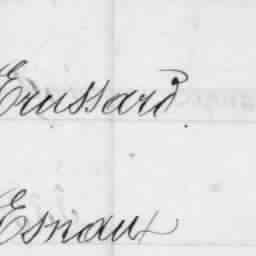 Erussard.
Esnaux